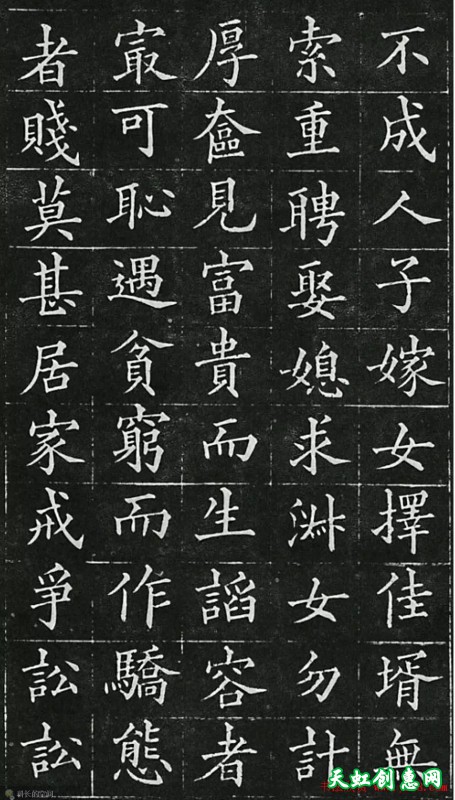 不成人子嫁女擇佳壻無
索重聘娶媳求淑女勿計
厚奩見富貴而生諂容者
㝡可恥遇貧窮而作驕態
者賤莫甚居家戒爭訟訟
天虹创惠网